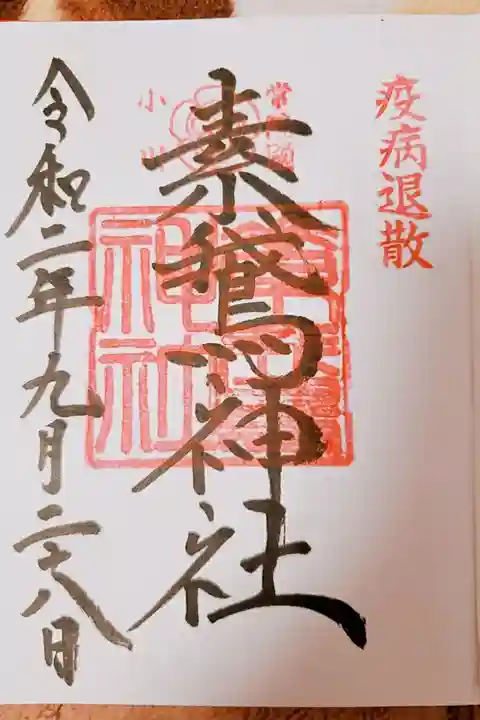 疫病退散
小川
素鵞神社
神社
令和二年九月二十八日